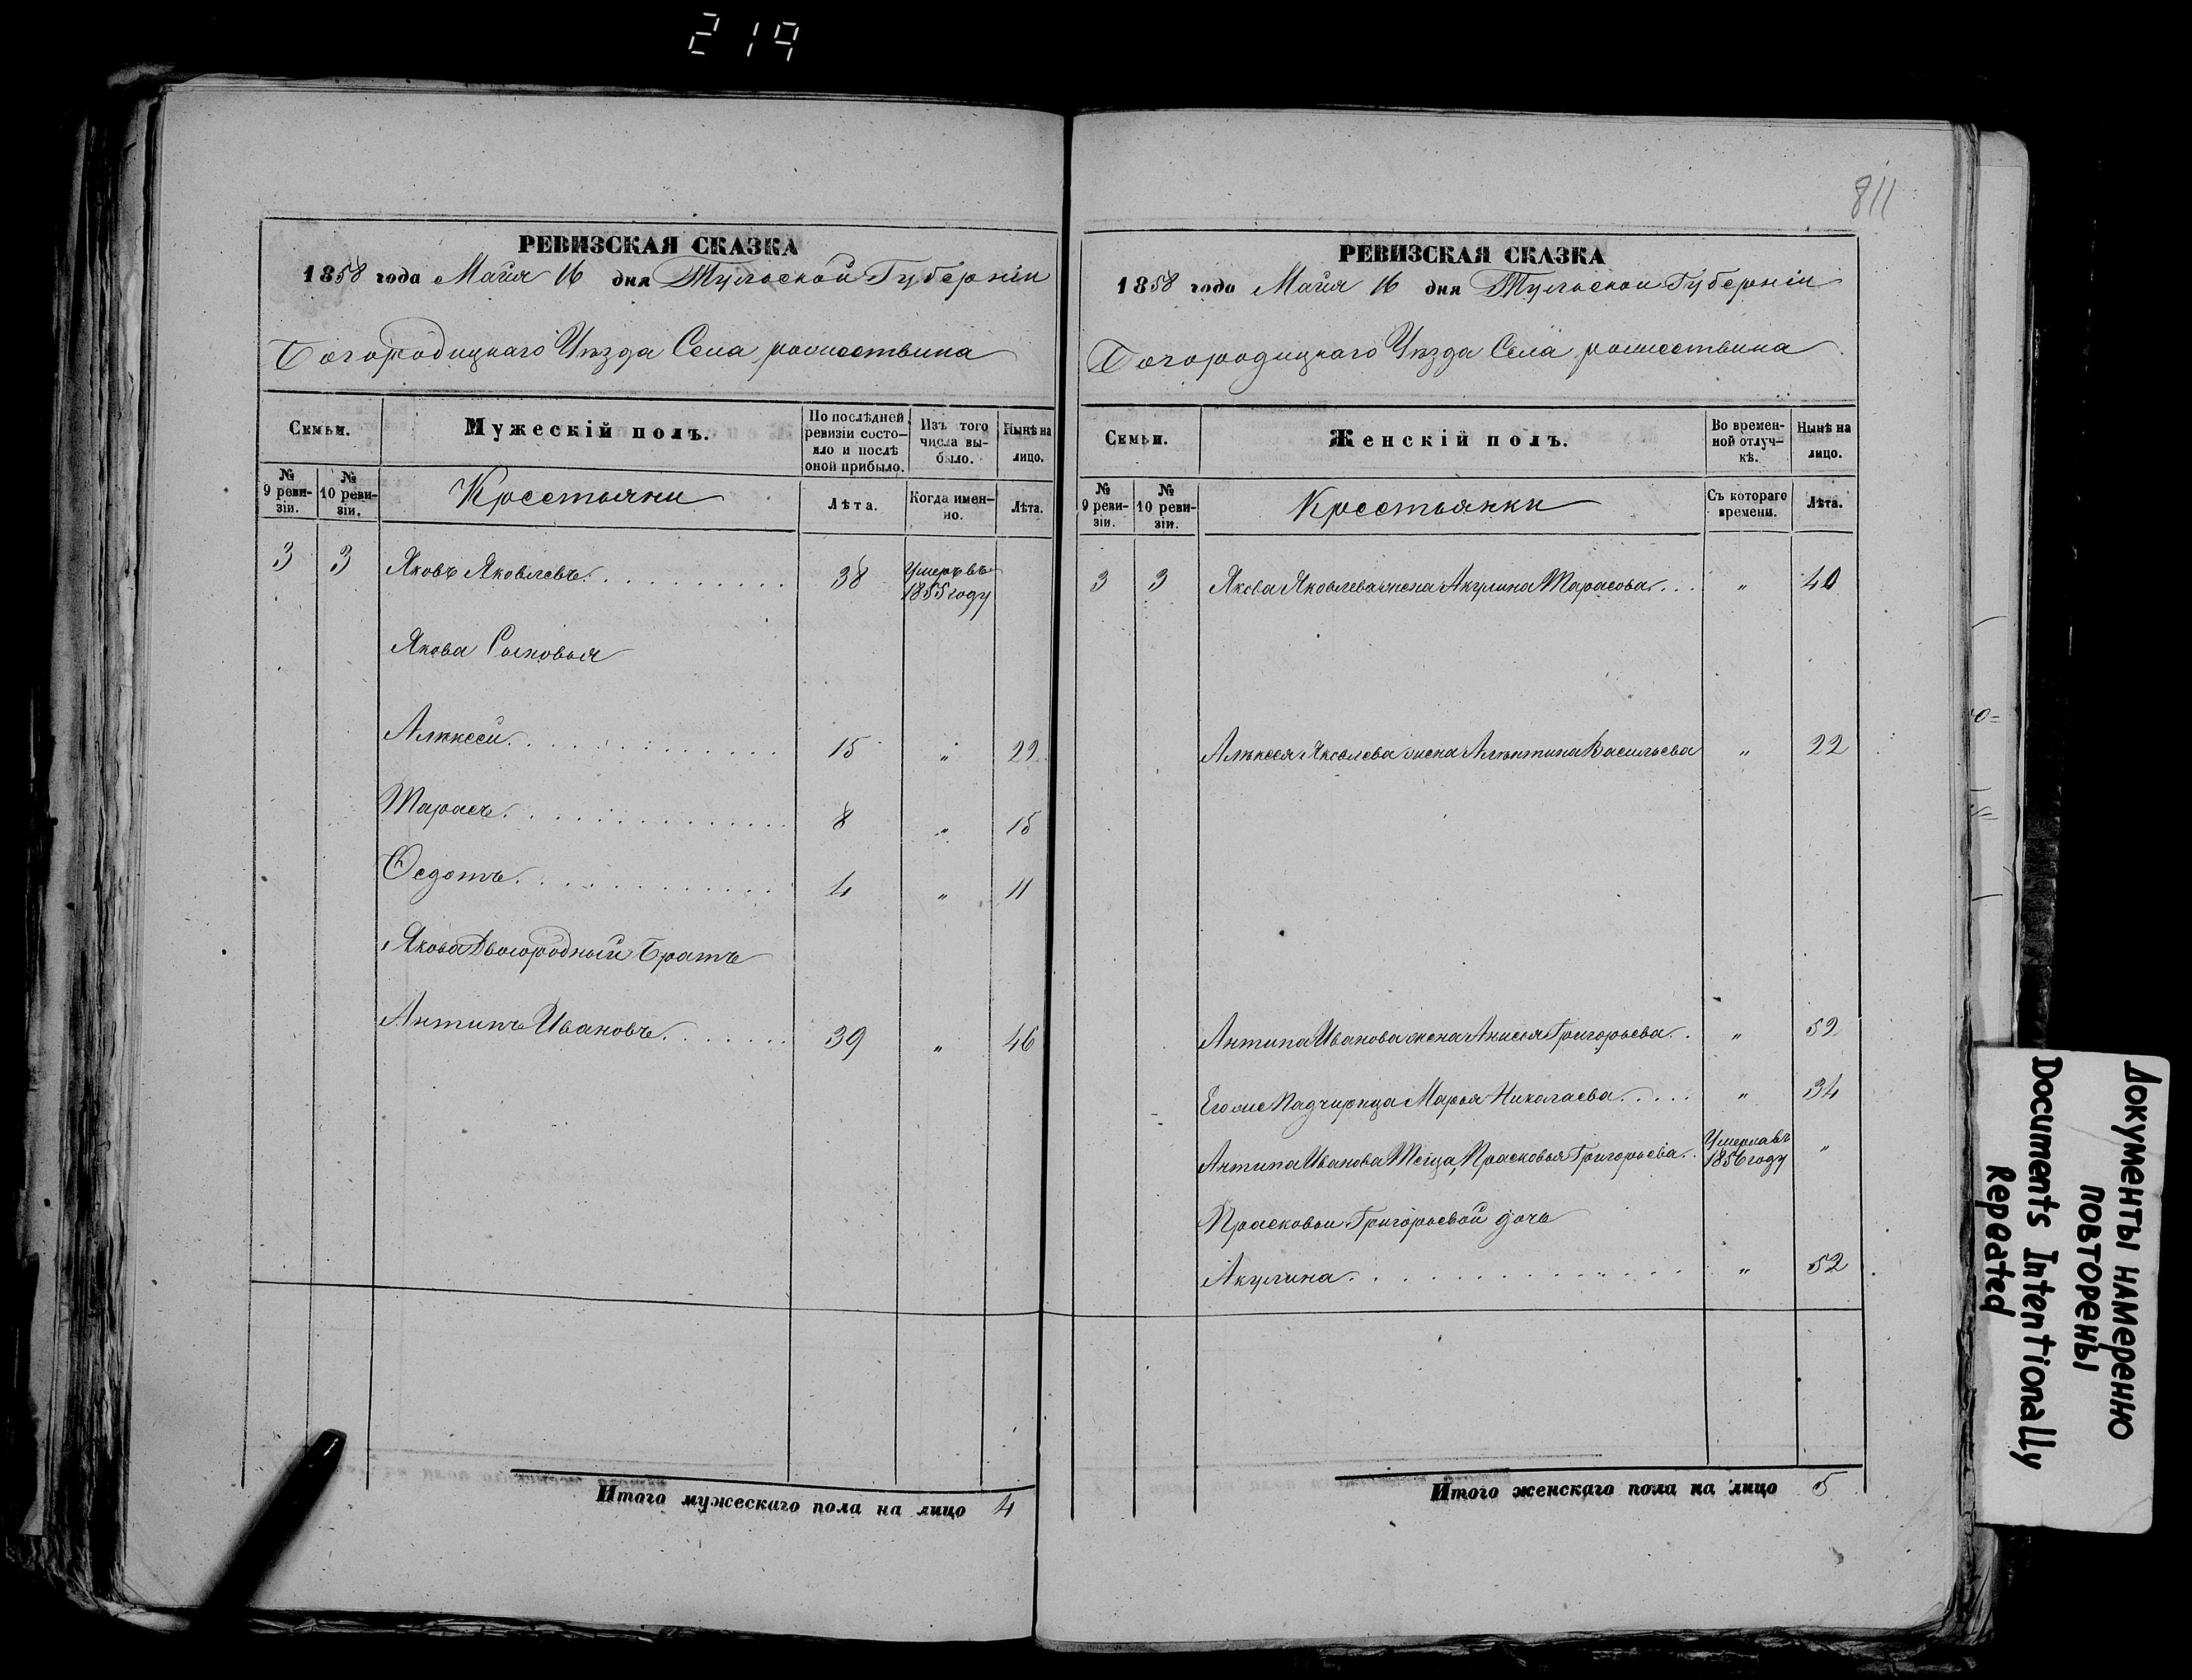 219
811
РЕВИЗСКАЯ СКАЗКА
1858 года Майя 16 дня Тульской Губерніи
Богородицкаго Уѣзда Села рожествина
Семьи.
Мужескій полъ.
По послѣдней ревизіи состо-яло и послѣ оной прибыло.
Изъ того числа вы-было.
Нынѣ на лицо.
№ 9 реви-зіи.
№ 10 реви-зіи.
Крестьяни
Лѣта.
Когда имен-но.
Лѣта.
3 3 Яковъ Яковлевъ. 38 Умеръ въ 1855 году
Якова Сыновья
Алѣксей. 15 " 22
Тарасъ. 8 " 15
Ѳедотъ. 4 " 11
Якова Двоюродный Братъ
Антипъ Ивановъ. 39 " 46
Итого мужескаго пола на лицо 4
РЕВИЗСКАЯ СКАЗКА
1858 года Майя 16 дня Тульской Губерніи
Богородицкаго Уѣзда Села рожествина
Семьи.
Женскій полъ.
Во времен-ной отлуч-кѣ.
Нынѣ на лицо.
№ 9 реви-зіи.
№ 10 реви-зіи.
Крестьянки
Съ котораго времени.
Лѣта.
3 3 Якова Яковлева жена Акулина Тарасова. " 40
Алѣксея Яковлева жена Васильева " 22
Антипа Иванова жена Анисья Григорьева. " 52
Его же Падчирица Марья Николаева. " 34
Антипа Иванова Прасковья Григорьева. Умерла въ 1856 году "
Прасковьи Григорьевой дочь
Акулина. " 52
Итого женскаго пола на лицо 5
Документы намеренно
повторены
Documents Intentionally
Repeated